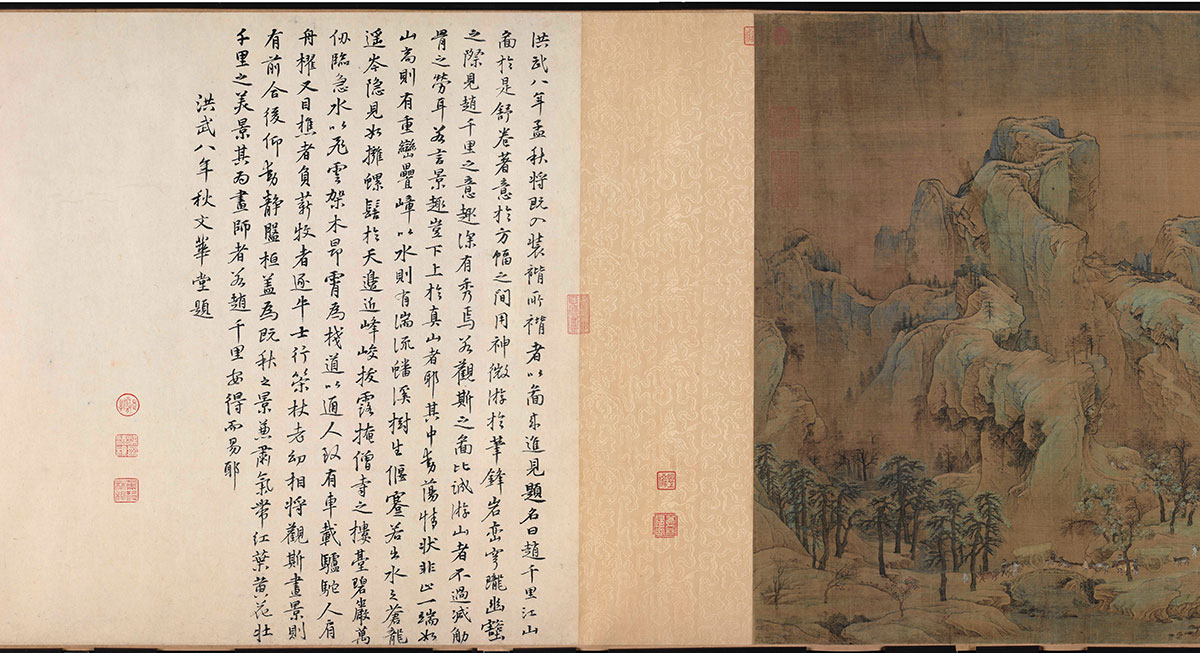 洪武八年孟秋將既入裝褙所褙者以啚來進見題名曰趙千里江山
啚於是舒卷著意於方幅之間用神微游於筆鋒岩巒穹曨幽壑
之際見趙千里之意趣深有秀焉若觀斯之啚比誠游山者不過減觔
骨之勞耳若言景趣豈下上於真山者耶其中動蕩情狀非止一端如
山高則有重巒疊嶂以水則有湍流蟠溪樹生偃蹇若出水之蒼龍
遥岑隐見如擁螺髻於天邊近峰峻拔露掩僧寺之樓臺碧巖萬
仞臨急水以飛雲架木昂霄為棧道以通人致有車載驢駝人肩
舟櫂又目樵者負薪牧者逐牛士行策杖老幼相將觀斯畫景則
有前合後仰動靜盤桓盖為既秋之景兼肅氣帶紅葉黄花壮
千里之美景其為畫師者若趙千里安得而易耶
洪武八年秋文華堂題